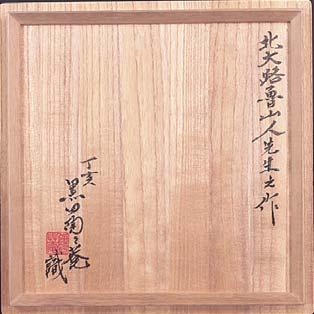 北大路魯山人先生之作
丁亥
黒田陶々菴
識